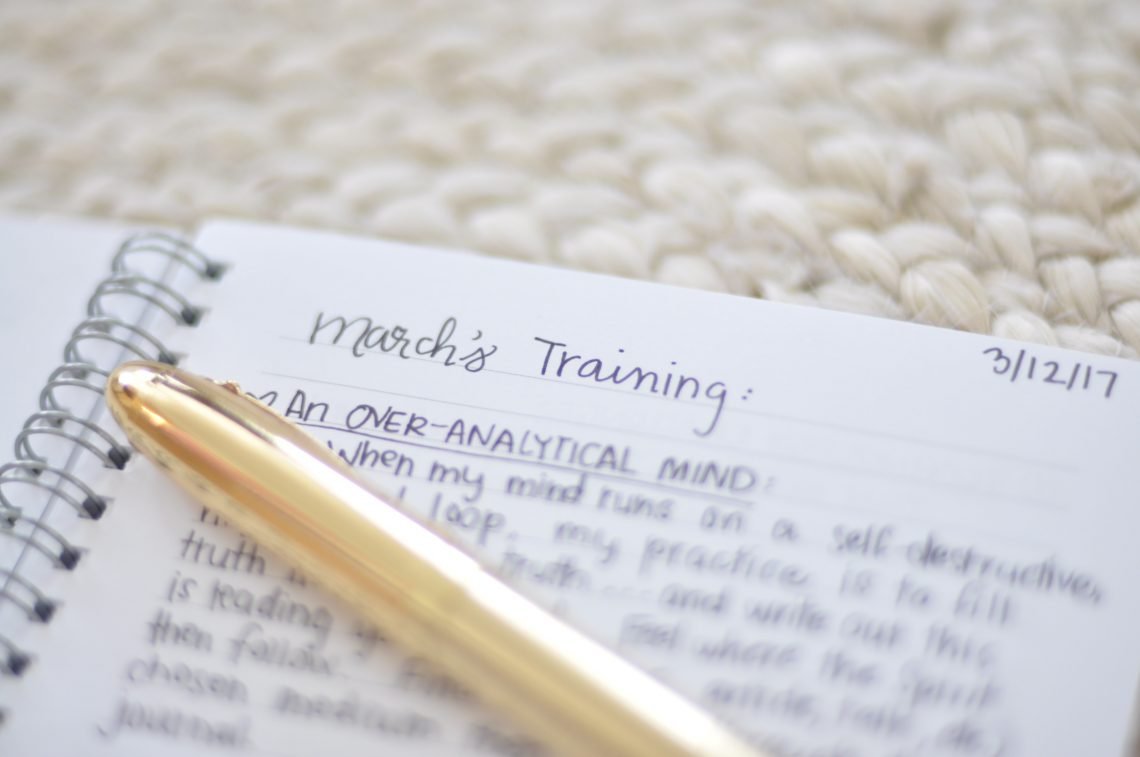 March's Training:
3/12/17
An OVER-ANALYTICAL MIND:
When my mind runs on a self destructive,
loop. my practice is to fill
truth truth... and write out this
is leading Feel where the Spirit
then follow. article, talk, etc,
chosen medium
journal.